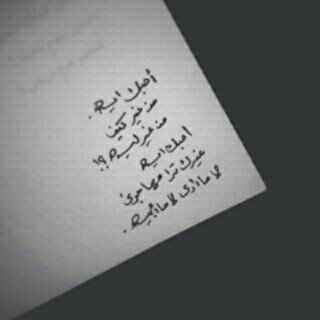 أحبك ايه .
من غير كيف
من غير ليه ؟!
احبك ايه
غيرك ترا مهما جرى
لا ما أرى لا ما أبيه .